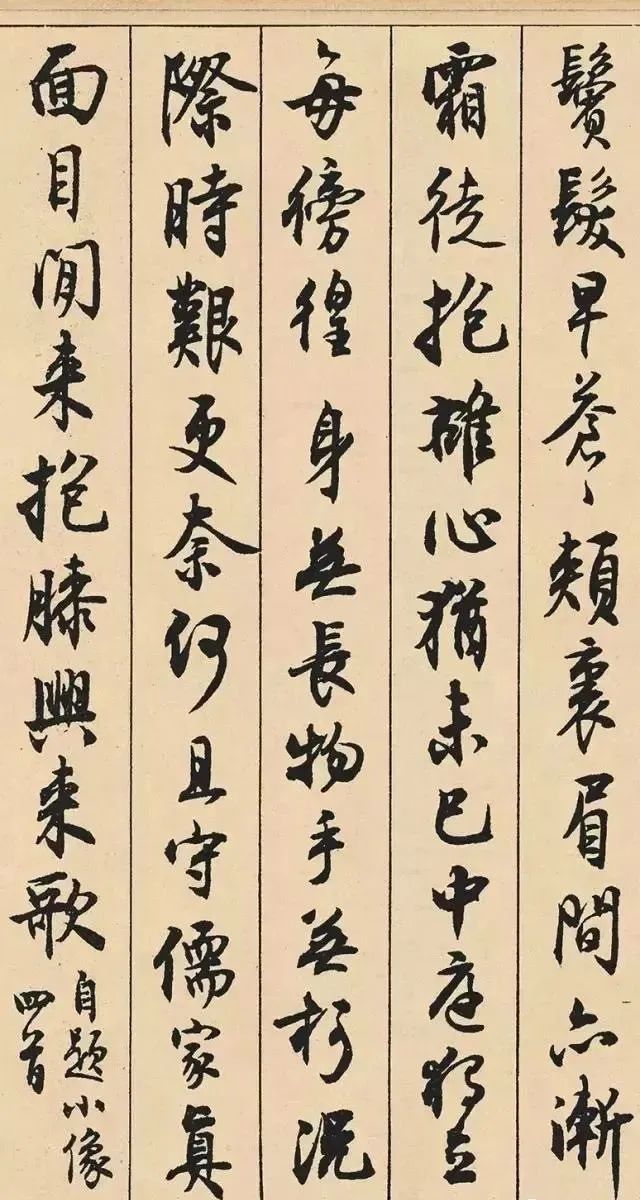 鬢髮早蒼〻頰裏眉間亦漸
霜徒抱雄心猶未已中庭獨立
每徬徨身無長物手無柯況
際時艱更奈何且守儒家真
面目閒来抱膝興来歌
自題小像
四首